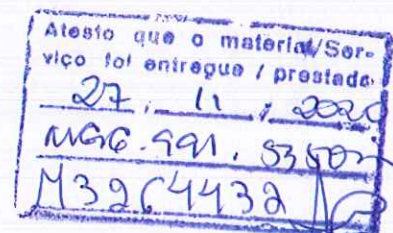 Atesto que o material/Ser-
viço foi entregue / prestado.
27 / 11 / 2020
M3264432